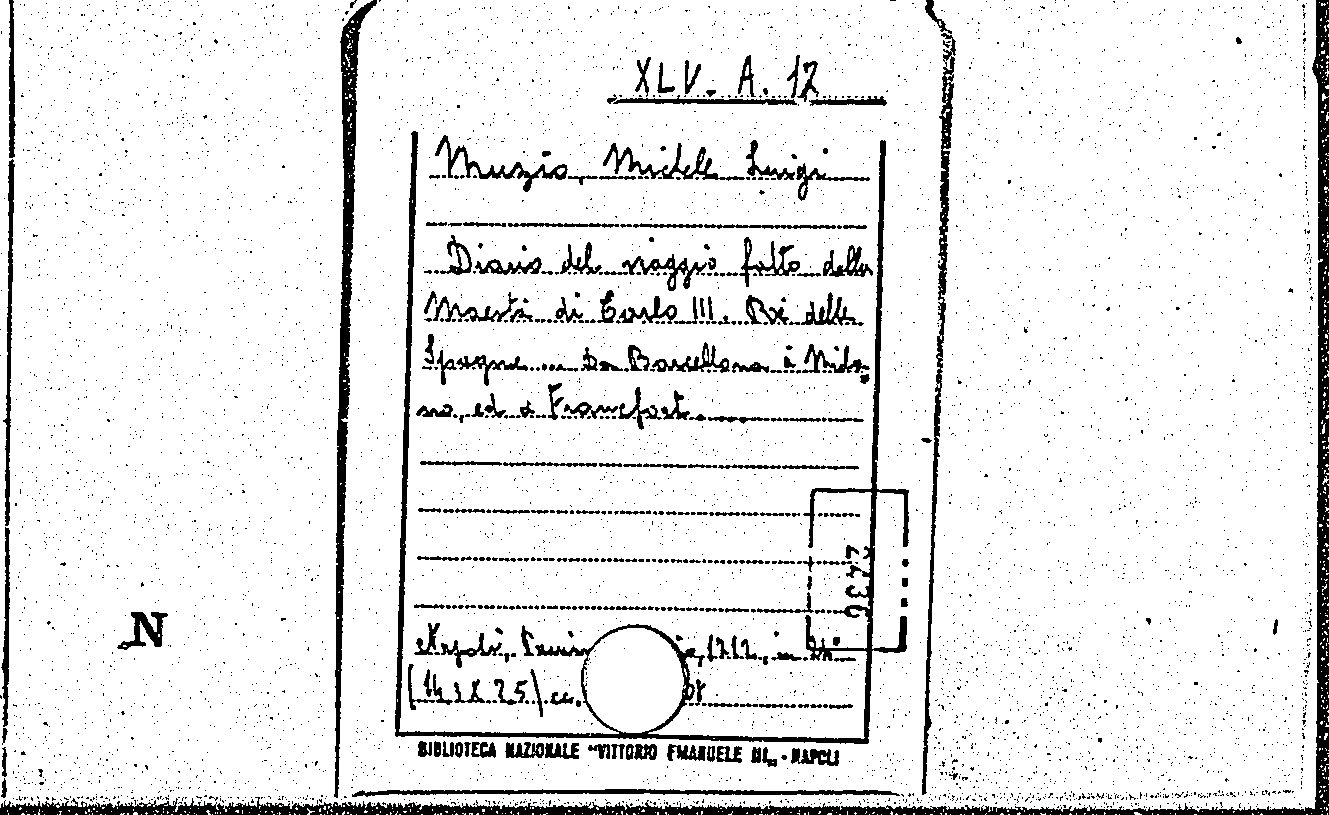 XLV. A. 12
Muzio, Michele Luigi
Diario del viaggio fatto dalla
Maestà di Carlo III. Rè delle
Spagne... Da Barcellona à Mila„
no, ed a Francfort.....
2436
N
Napoli, 1712, in 24°
BIBLIOTECA NAZIONALE "VITTORIO EMANUELE III„ - NAPOLI